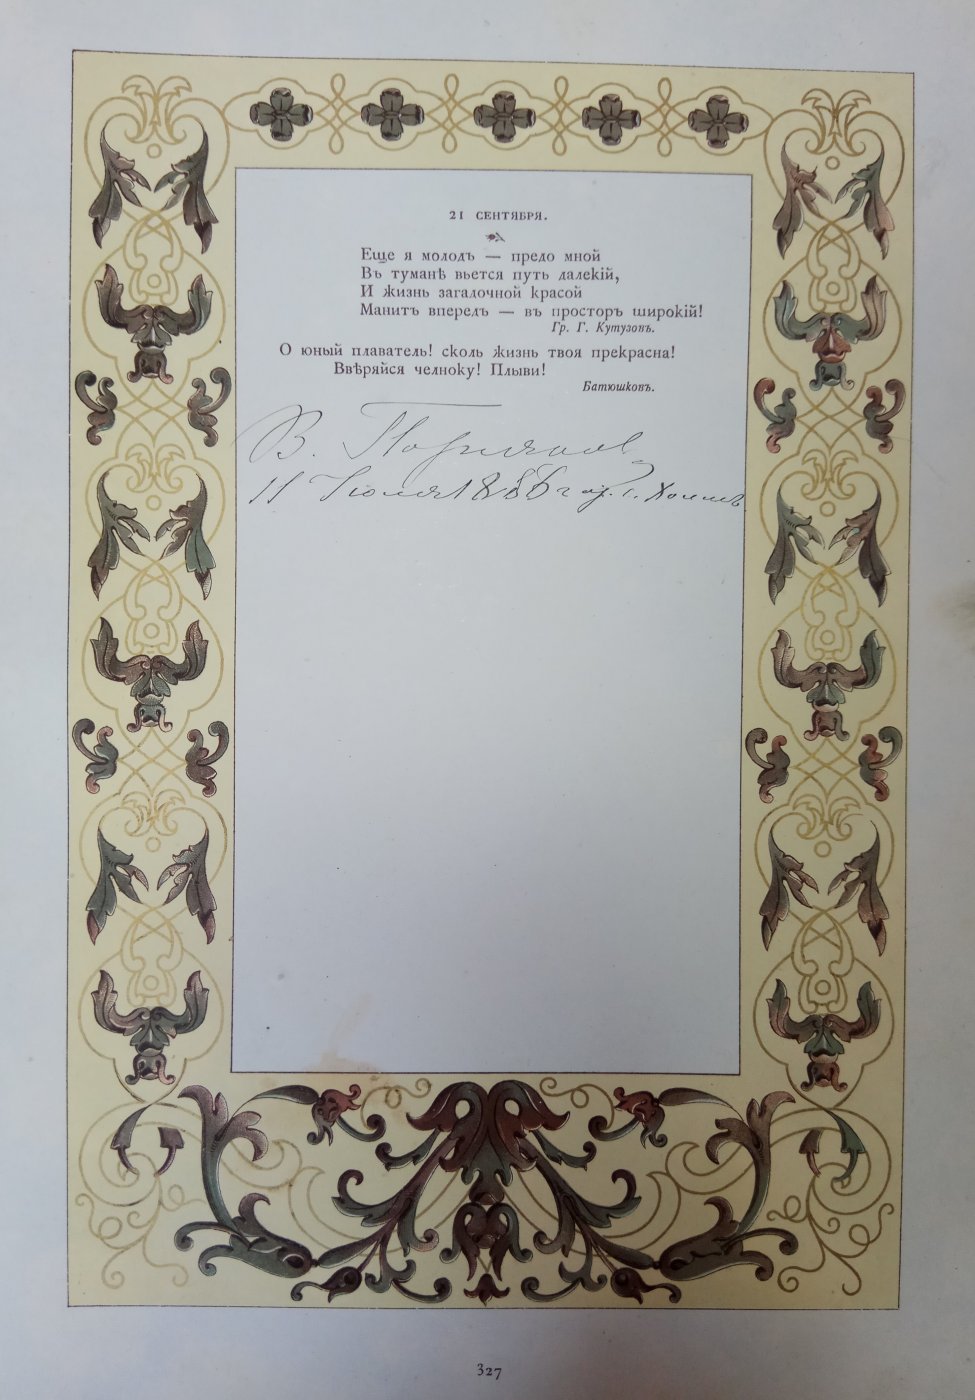 21 СЕНТЯБРЯ.
Еще я молодъ — предо мной
Въ туманѣ вьется путь далекій,
И жизнь загадочной красой
Манитъ впередъ — въ просторъ широкій!
Гр. Г. Кутузовъ.
О юный плаватель! сколь жизнь твоя прекрасна!
Ввѣряйся челноку! Плыви!
Батюшковъ.
В.
11 Іюля 1886 г
327